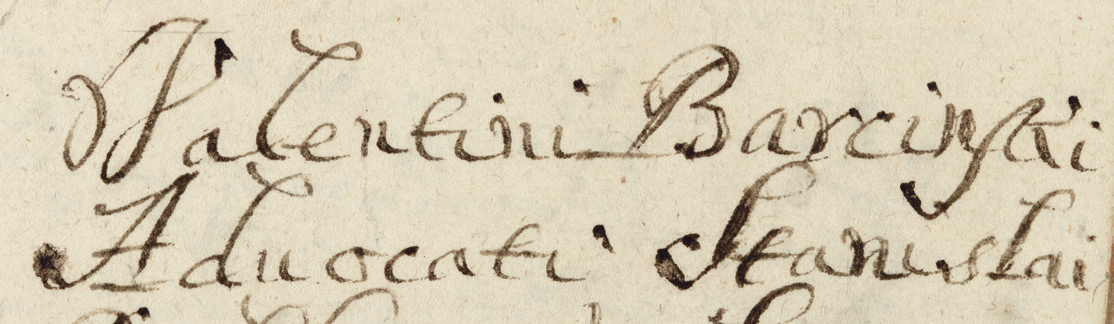 Valentini Barcinski
Advocati Stanislai